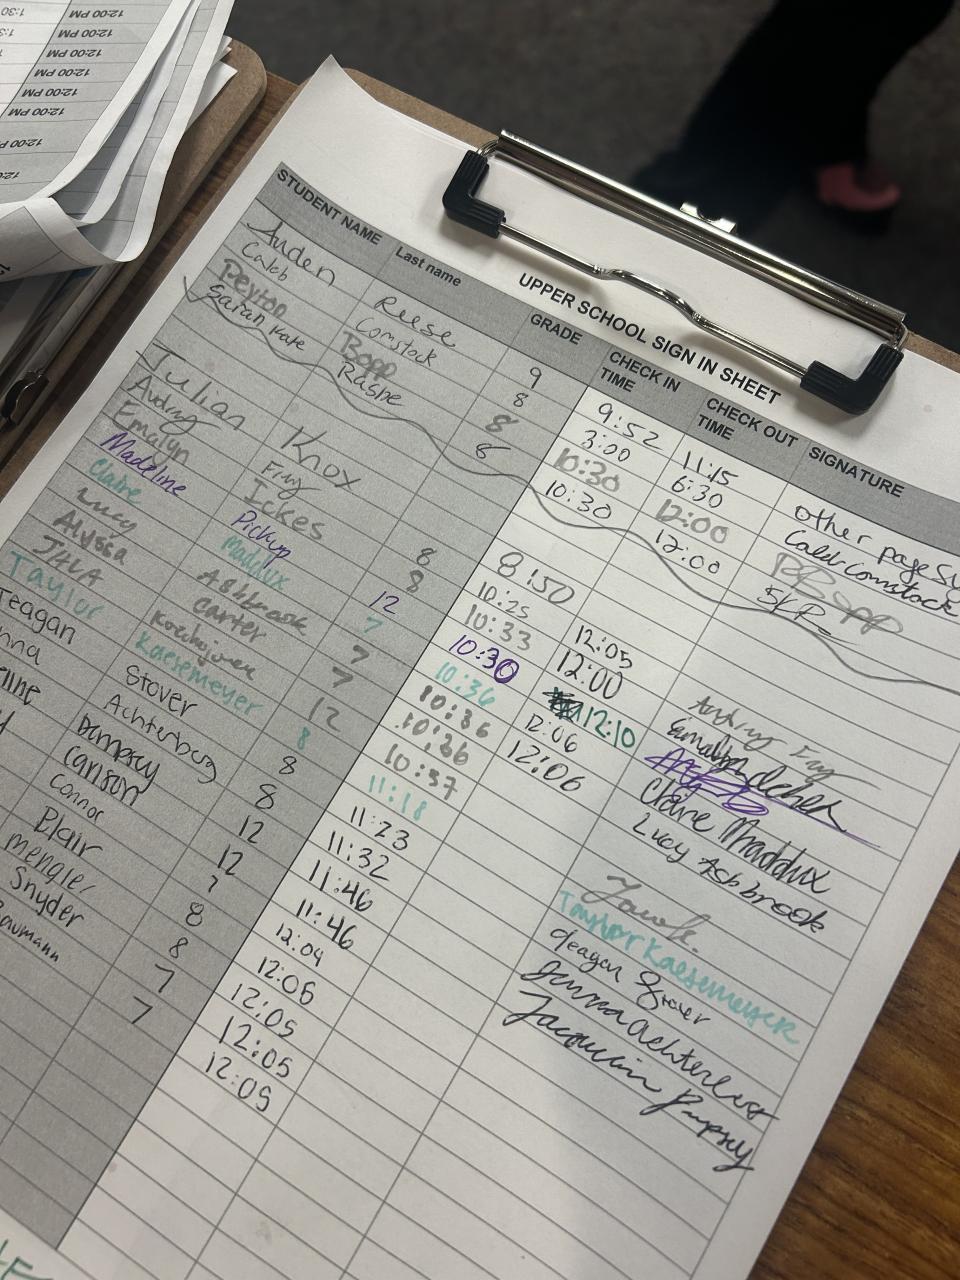 12:00 PM
12:00 PM
12:00 PM
12:00 PM
12:00 PM
12:00 PM
12:00 PM
UPPER SCHOOL SIGN IN SHEET
STUDENT NAME Last name GRADE CHECK IN TIME CHECK OUT TIME SIGNATURE
Auden Reese 9 9:52 11:15 other page
Caleb Comstock 8 3:00 6:30 Caleb Comstock
Peyton Bopp 8 10:30 12:00
Sarah Kate Raspe 8 10:30 12:00 SKR
Julian Knox 8 8:50
Audrey Fray 8 10:25 12:05 Audrey Fray
Emalyn Ickes 10:33 12:00
Madeline Pickup 12 10:30
Claire Maddux 7 10:36 12:10 Claire Maddux
Lucy Ashbrook 7 10:36 12:06 Lucy Ashbrook
Alyssa Carter 7 10:36 12:06
12 10:37
Taylor Kaesemeyer 8 11:18 Taylor Kaesemeyer
Teagan Stover 8 11:23 Teagan Stover
nna Achterburg 8 11:32
Dempsey 12 11:46
Carlson 12 11:46
Connor 7 12:04
Blair 8 12:06
8 12:05
Snyder 7 12:05
7 12:05